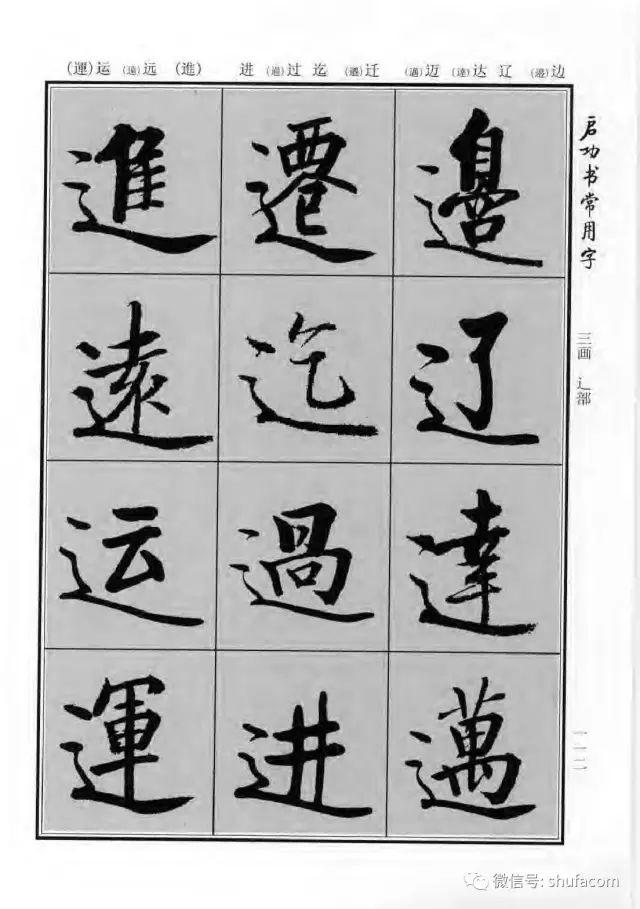 (運)运 (遠)远 (進) 进 (過)过 迄 (遷)迁 (邁)迈 (達)达 辽 (邊)边
启功书常用字
三画 辶部
一一二
邊辽達邁
遷迄過进
進遠运運
微信号: shufacom